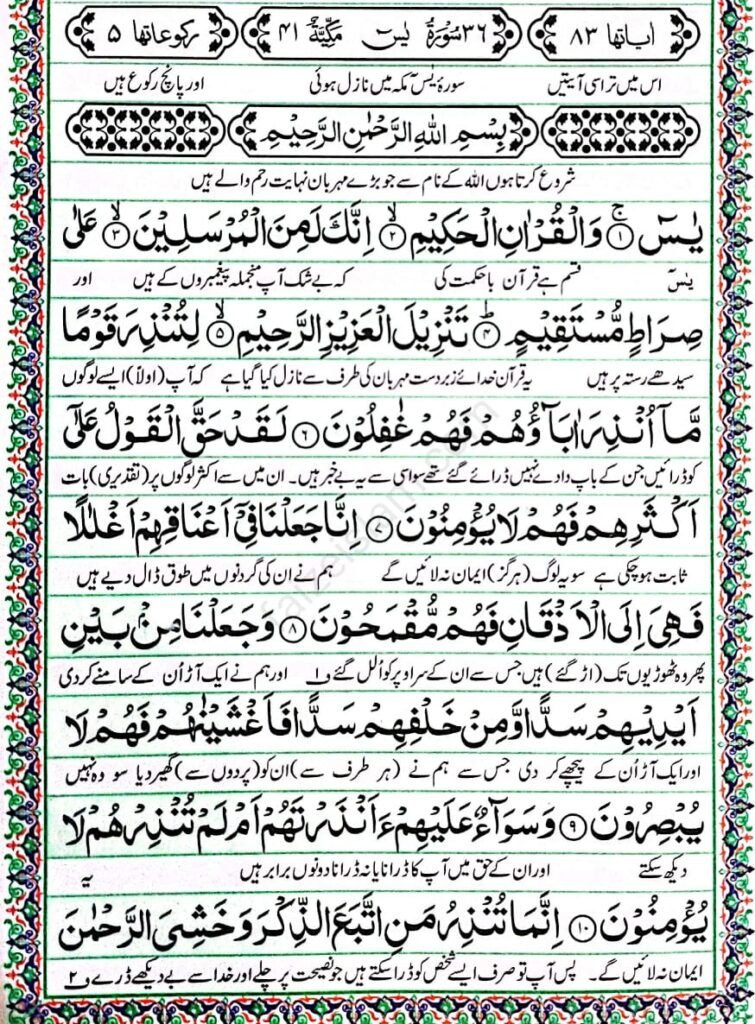 اٰیاتہا ۸۳ ۳۶ سُوْرَةُ یٰسٓ مَکِّیَّةٌ ۴۱ رکوعاتہا ۵
اس میں تراسی آیتیں سورۂ یٰسٓ مکہ میں نازل ہوئی اور پانچ رکوع ہیں
بِسْمِ اللهِ الرَّحْمٰنِ الرَّحِيْمِ
شروع کرتا ہوں اللہ کے نام سے جو بڑے مہربان نہایت رحم والے ہیں
يٰسٓ ۚ﴿۱﴾ وَالْقُرْاٰنِ الْحَكِيْمِ ۙ﴿۲﴾ اِنَّكَ لَمِنَ الْمُرْسَلِيْنَ ۙ﴿۳﴾ عَلٰى
یٰسٓ قسم ہے قرآن باحکمت کی کہ بے شک آپ منجملہ پیغمبروں کے ہیں اور
صِرَاطٍ مُّسْتَقِيْمٍ ؕ﴿۴﴾ تَنْزِيْلَ الْعَزِيْزِ الرَّحِيْمِ ۙ﴿۵﴾ لِتُنْذِرَ قَوْمًا
سیدھے رستہ پر ہیں یہ قرآن خدائے زبردست مہربان کی طرف سے نازل کیا گیا ہے کہ آپ (اولاً) ایسے لوگوں
مَّاۤ اُنْذِرَ اٰبَآؤُهُمْ فَهُمْ غٰفِلُوْنَ ﴿۶﴾ لَقَدْ حَقَّ الْقَوْلُ عَلٰۤى
کو ڈرائیں جن کے باپ دادے نہیں ڈرائے گئے تھے سو اسی سے یہ بے خبر ہیں۔ ان میں سے اکثر لوگوں پر (تقدیری) بات
اَكْثَرِهِمْ فَهُمْ لَا يُؤْمِنُوْنَ ﴿۷﴾ اِنَّا جَعَلْنَا فِيْۤ اَعْنَاقِهِمْ اَغْلٰلًا
ثابت ہو چکی ہے سو یہ لوگ (ہرگز) ایمان نہ لائیں گے ہم نے ان کی گردنوں میں طوق ڈال دیے ہیں
فَهِيَ اِلَى الْاَذْقَانِ فَهُمْ مُّقْمَحُوْنَ ﴿۸﴾ وَجَعَلْنَا مِنْۢ بَيْنِ
پھر وہ ٹھوڑیوں تک (اڑ گئے) ہیں جس سے ان کے سر اوپر کو الل گئے ف۱ اور ہم نے ایک آڑ اُن کے سامنے کر دی
اَيْدِيْهِمْ سَدًّا وَّمِنْ خَلْفِهِمْ سَدًّا فَاَغْشَيْنٰهُمْ فَهُمْ لَا
اور ایک آڑ اُن کے پیچھے کر دی جس سے ہم نے (ہر طرف سے) ان کو (پردوں سے) گھیر دیا سو وہ نہیں
يُبْصِرُوْنَ ﴿۹﴾ وَسَوَآءٌ عَلَيْهِمْ ءَاَنْذَرْتَهُمْ اَمْ لَمْ تُنْذِرْهُمْ لَا
دیکھ سکتے اور ان کے حق میں آپ کا ڈرانا یا نہ ڈرانا دونوں برابر ہیں یہ
يُؤْمِنُوْنَ ﴿۱۰﴾ اِنَّمَا تُنْذِرُ مَنِ اتَّبَعَ الذِّكْرَ وَخَشِيَ الرَّحْمٰنَ
ایمان نہ لائیں گے۔ پس آپ تو صرف ایسے شخص کو ڈرا سکتے ہیں جو نصیحت پر چلے اور خدا سے بے دیکھے ڈرے ف۲